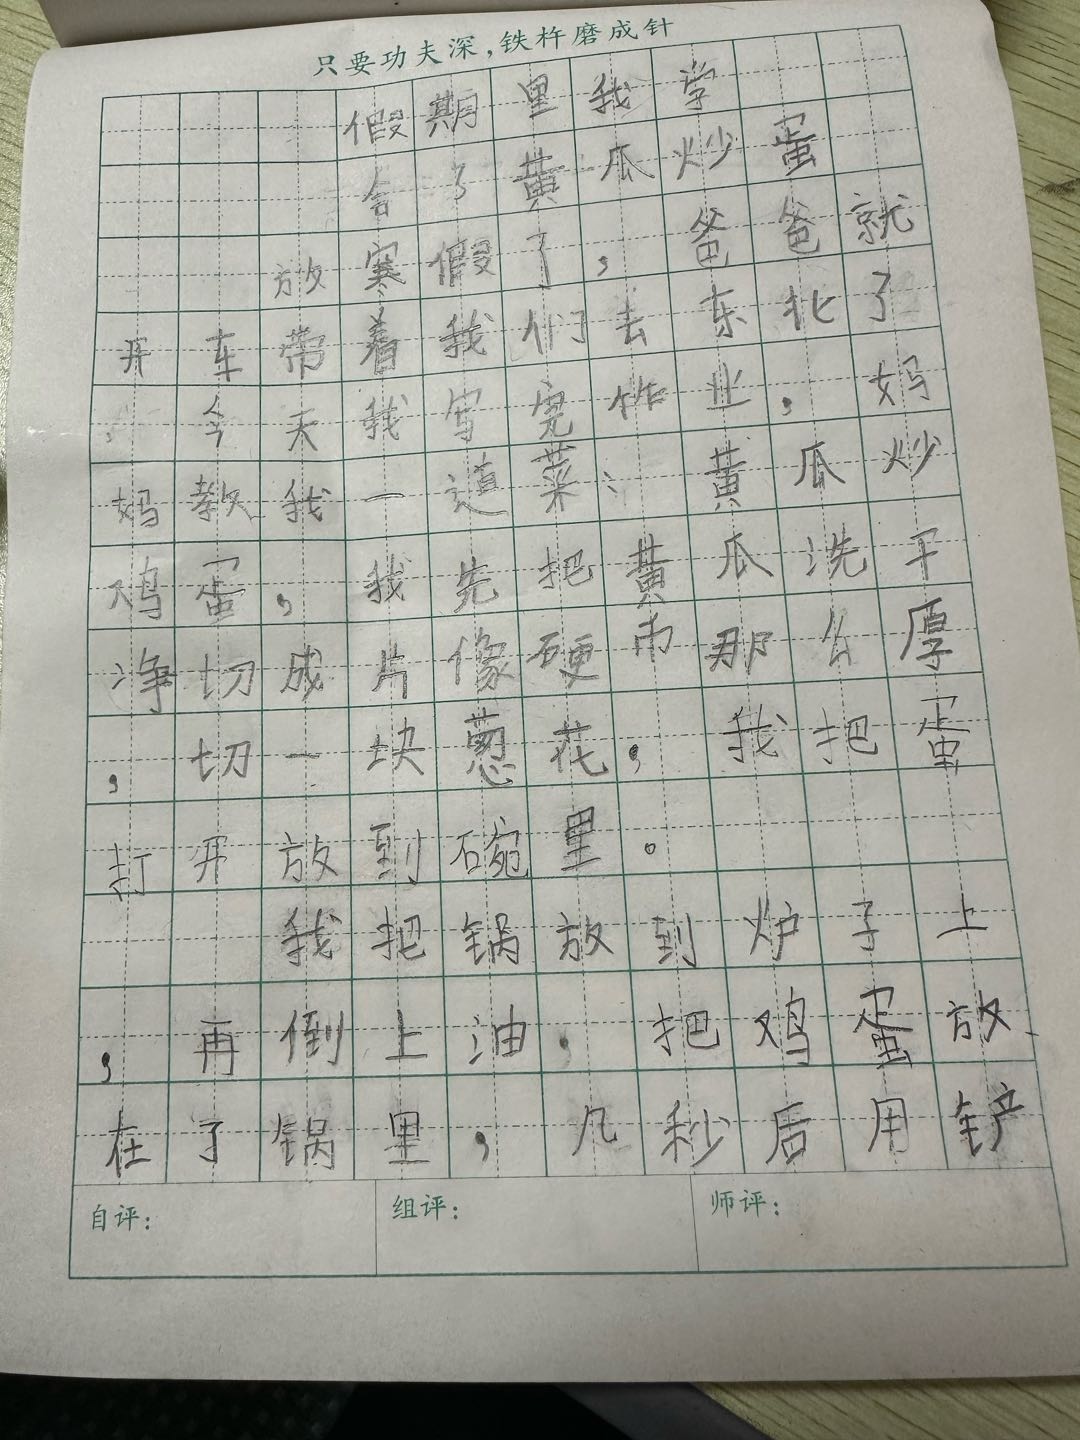 只要功夫深,铁杵磨成针
假期里我学
会了黄瓜炒蛋
放寒假了,爸爸就
开车带着我们去东北了
,今天我写完作业,妈
妈教我一道菜:黄瓜炒
鸡蛋,我先把黄瓜洗干
净切成片像硬币那么厚
,切一块葱花,我把蛋
打开放到碗里。
我把锅放到炉子上
,再倒上油,把鸡蛋放
在了锅里,几秒后用铲
自评:
组评:
师评: